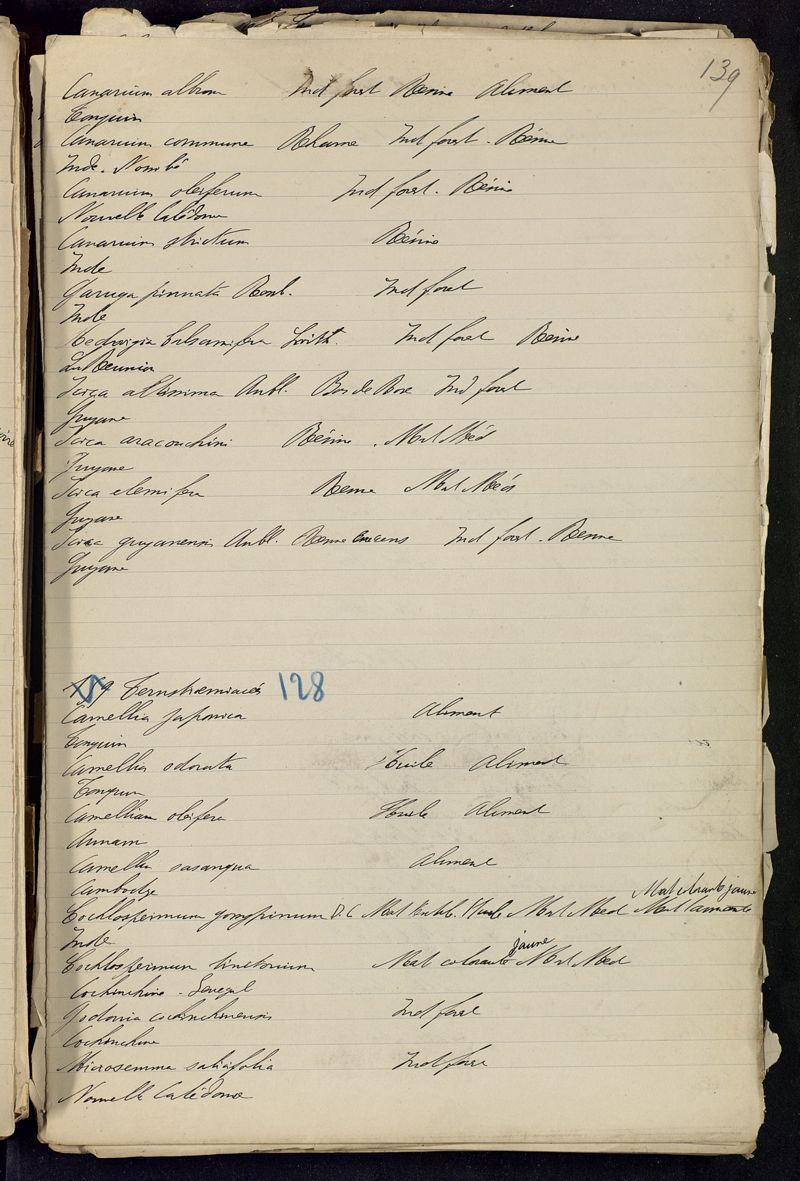 139
Canarium album Ind forest Résine Aliment
Tonquin
Canarium commune Ind forest. Résine
Inde.
Canarium oleiferum Ind forest. Résine
Nouvelle Calédonie
Canarium strictum Résine
Inde
Garuga pinnata Roxb. Ind forest
Inde
Hedwigia balsamifera Ind forest Résine
La Réunion
Icica altissima Aubl. Bois de Rose Ind forest
Guyane
Icica aracouchini Résine. Mat Méd
Guyane
Icica elemifera Résine Mat Méd
Guyane
Icica guyanensis Aubl. Résine Encens Ind forest. Résine
Guyane
Ternstrœmiacées 128
Camellia japonica Aliment
Tonquin
Camellia odorata Huile Aliment
Tonquin
Camellia oleifera Huile Aliment
Annam
Camellia sasanqua Aliment
Cambodge Mat colorante jaune
Cochlospermum gossypinum D.C Mat textile. Huile Mat Med Mat
Inde
jaune
Cochlospermum tinctorium Mat colorante Mat Med
Cochinchine. Senegal
Gordonia cochinchinensis Ind forest
Cochinchine
Microsemma salicifolia Ind forest
Nouvelle Calédonie